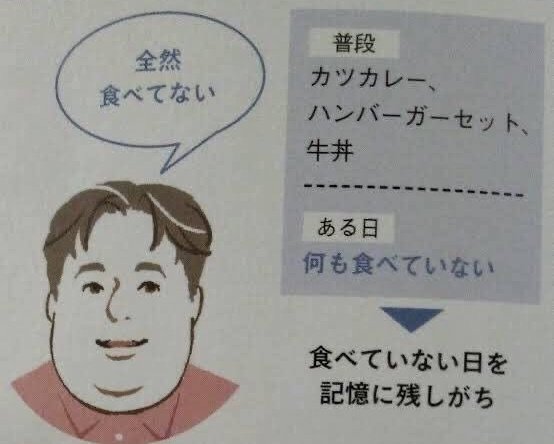 全然
食べてない
普段
カツカレー、
ハンバーガーセット、
牛丼
ある日
何も食べていない
食べていない日を
記憶に残しがち